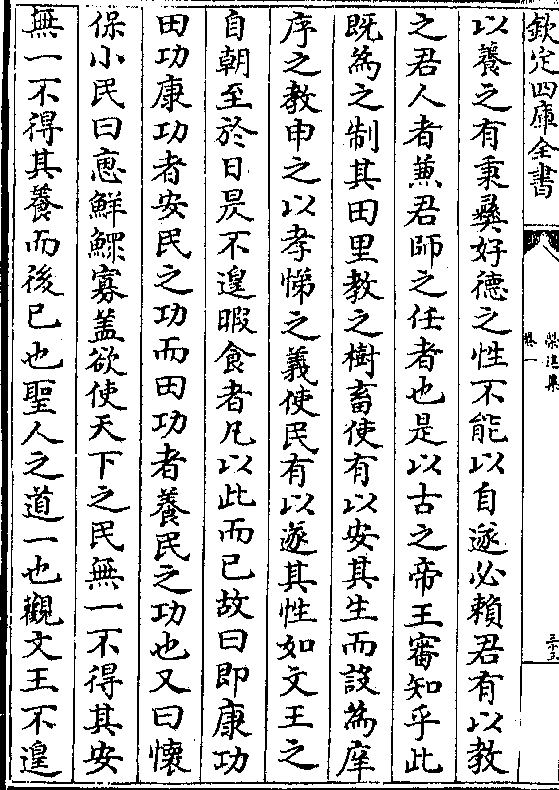 欽定四庫全書
榮進集
卷一
三十三
以養之有秉彝好德之性不能以自遂必賴君有以教
之君人者兼君師之任者也是以古之帝王審知乎此
既為之制其田里教之樹畜使有以安其生而設為庠
序之教申之以孝悌之義使民有以遂其性如文王之
自朝至於日昃不遑暇食者凡以此而已故曰即康功
田功康功者安民之功而田功者養民之功也又曰懷
保小民曰惠鮮鰥寡盖欲使天下之民無一不得其安
無一不得其養而後已也聖人之道一也觀文王不遑